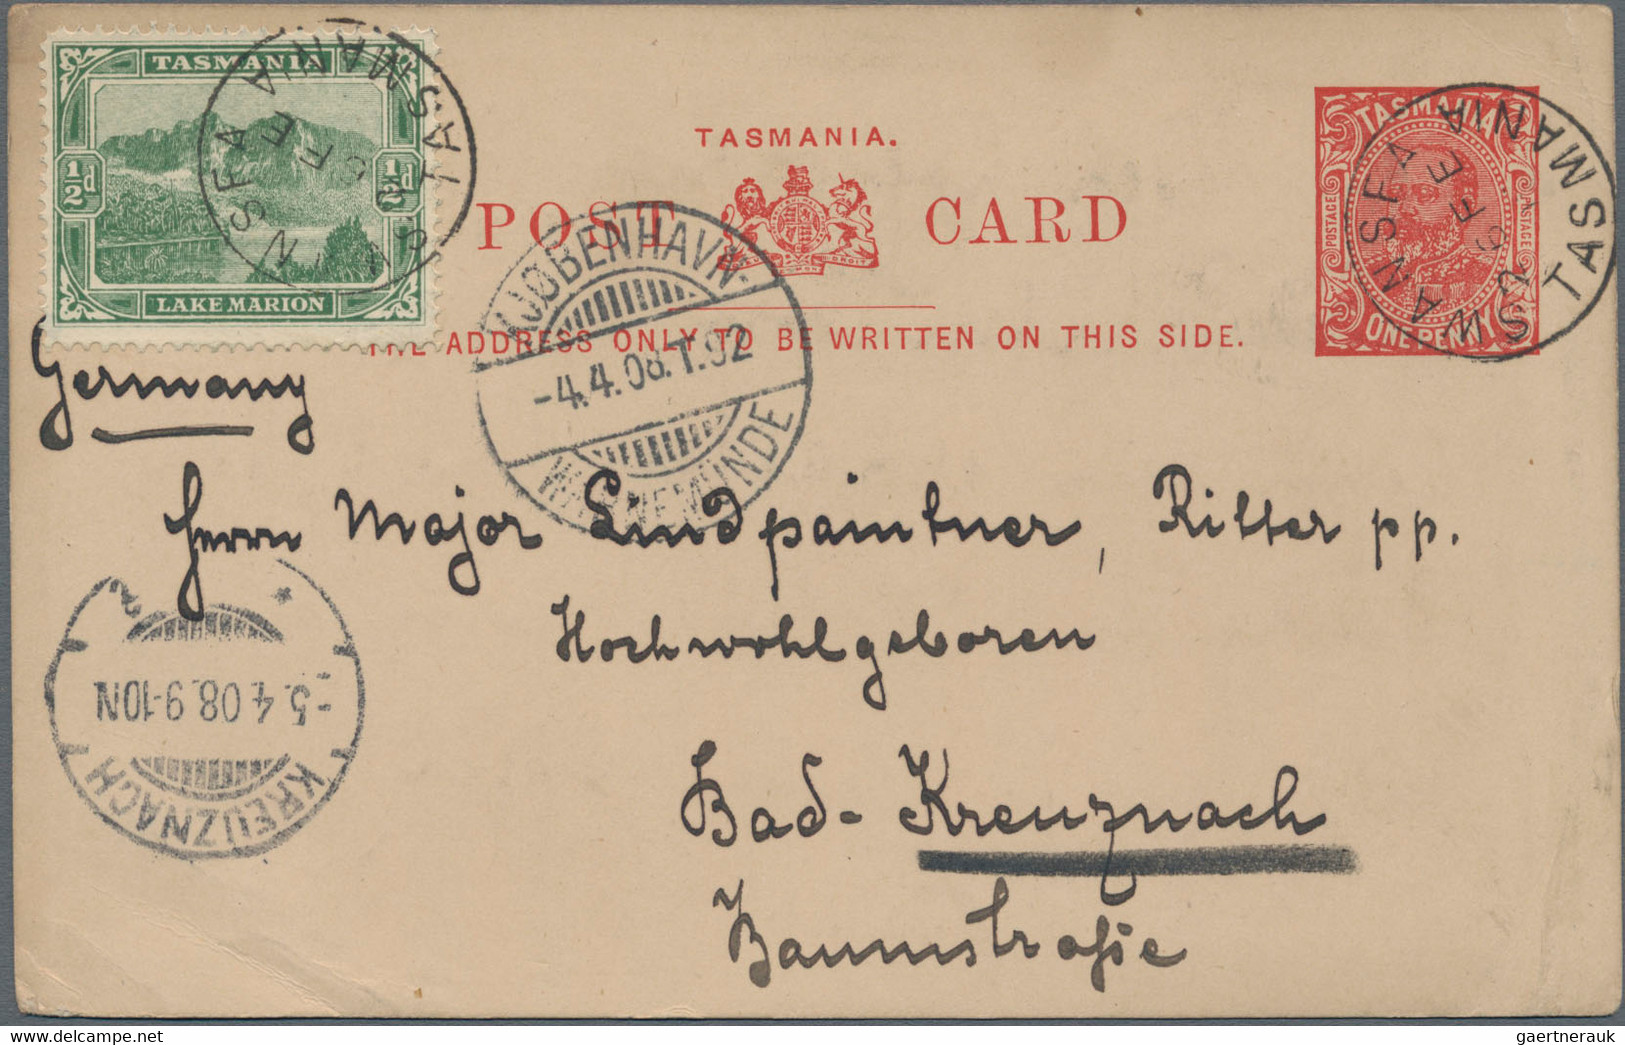 TASMANIA
½d ½d
LAKE MARION
TASMANIA.
POST CARD
THE ADDRESS ONLY TO BE WRITTEN ON THIS SIDE.
TASMANIA
POSTAGE POSTAGE
ONE PENNY
TASMANIA
TASMANIA
KJØBENHAVN.
-4.4.08.T.92
WARNEMÜNDE
Germany
Herrn Major Lindpaintner, Ritter pp.
Hochwohlgeboren
Bad-Kreuznach
Baumstraße
KREUZNACH
-5.4.08.9-10N
gaertnerauk